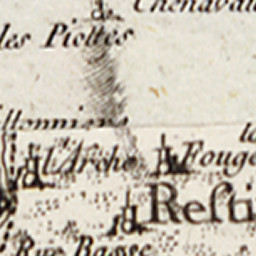 Chenavau
les Piottes
llonniers
la
l'Arche
Fouge
Resti
Rue Basse